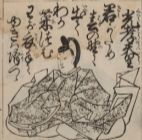 光孝天皇
君かため
春の野に
出て
わか
菜つむ
わか衣手に
ゆきはふりつゝ